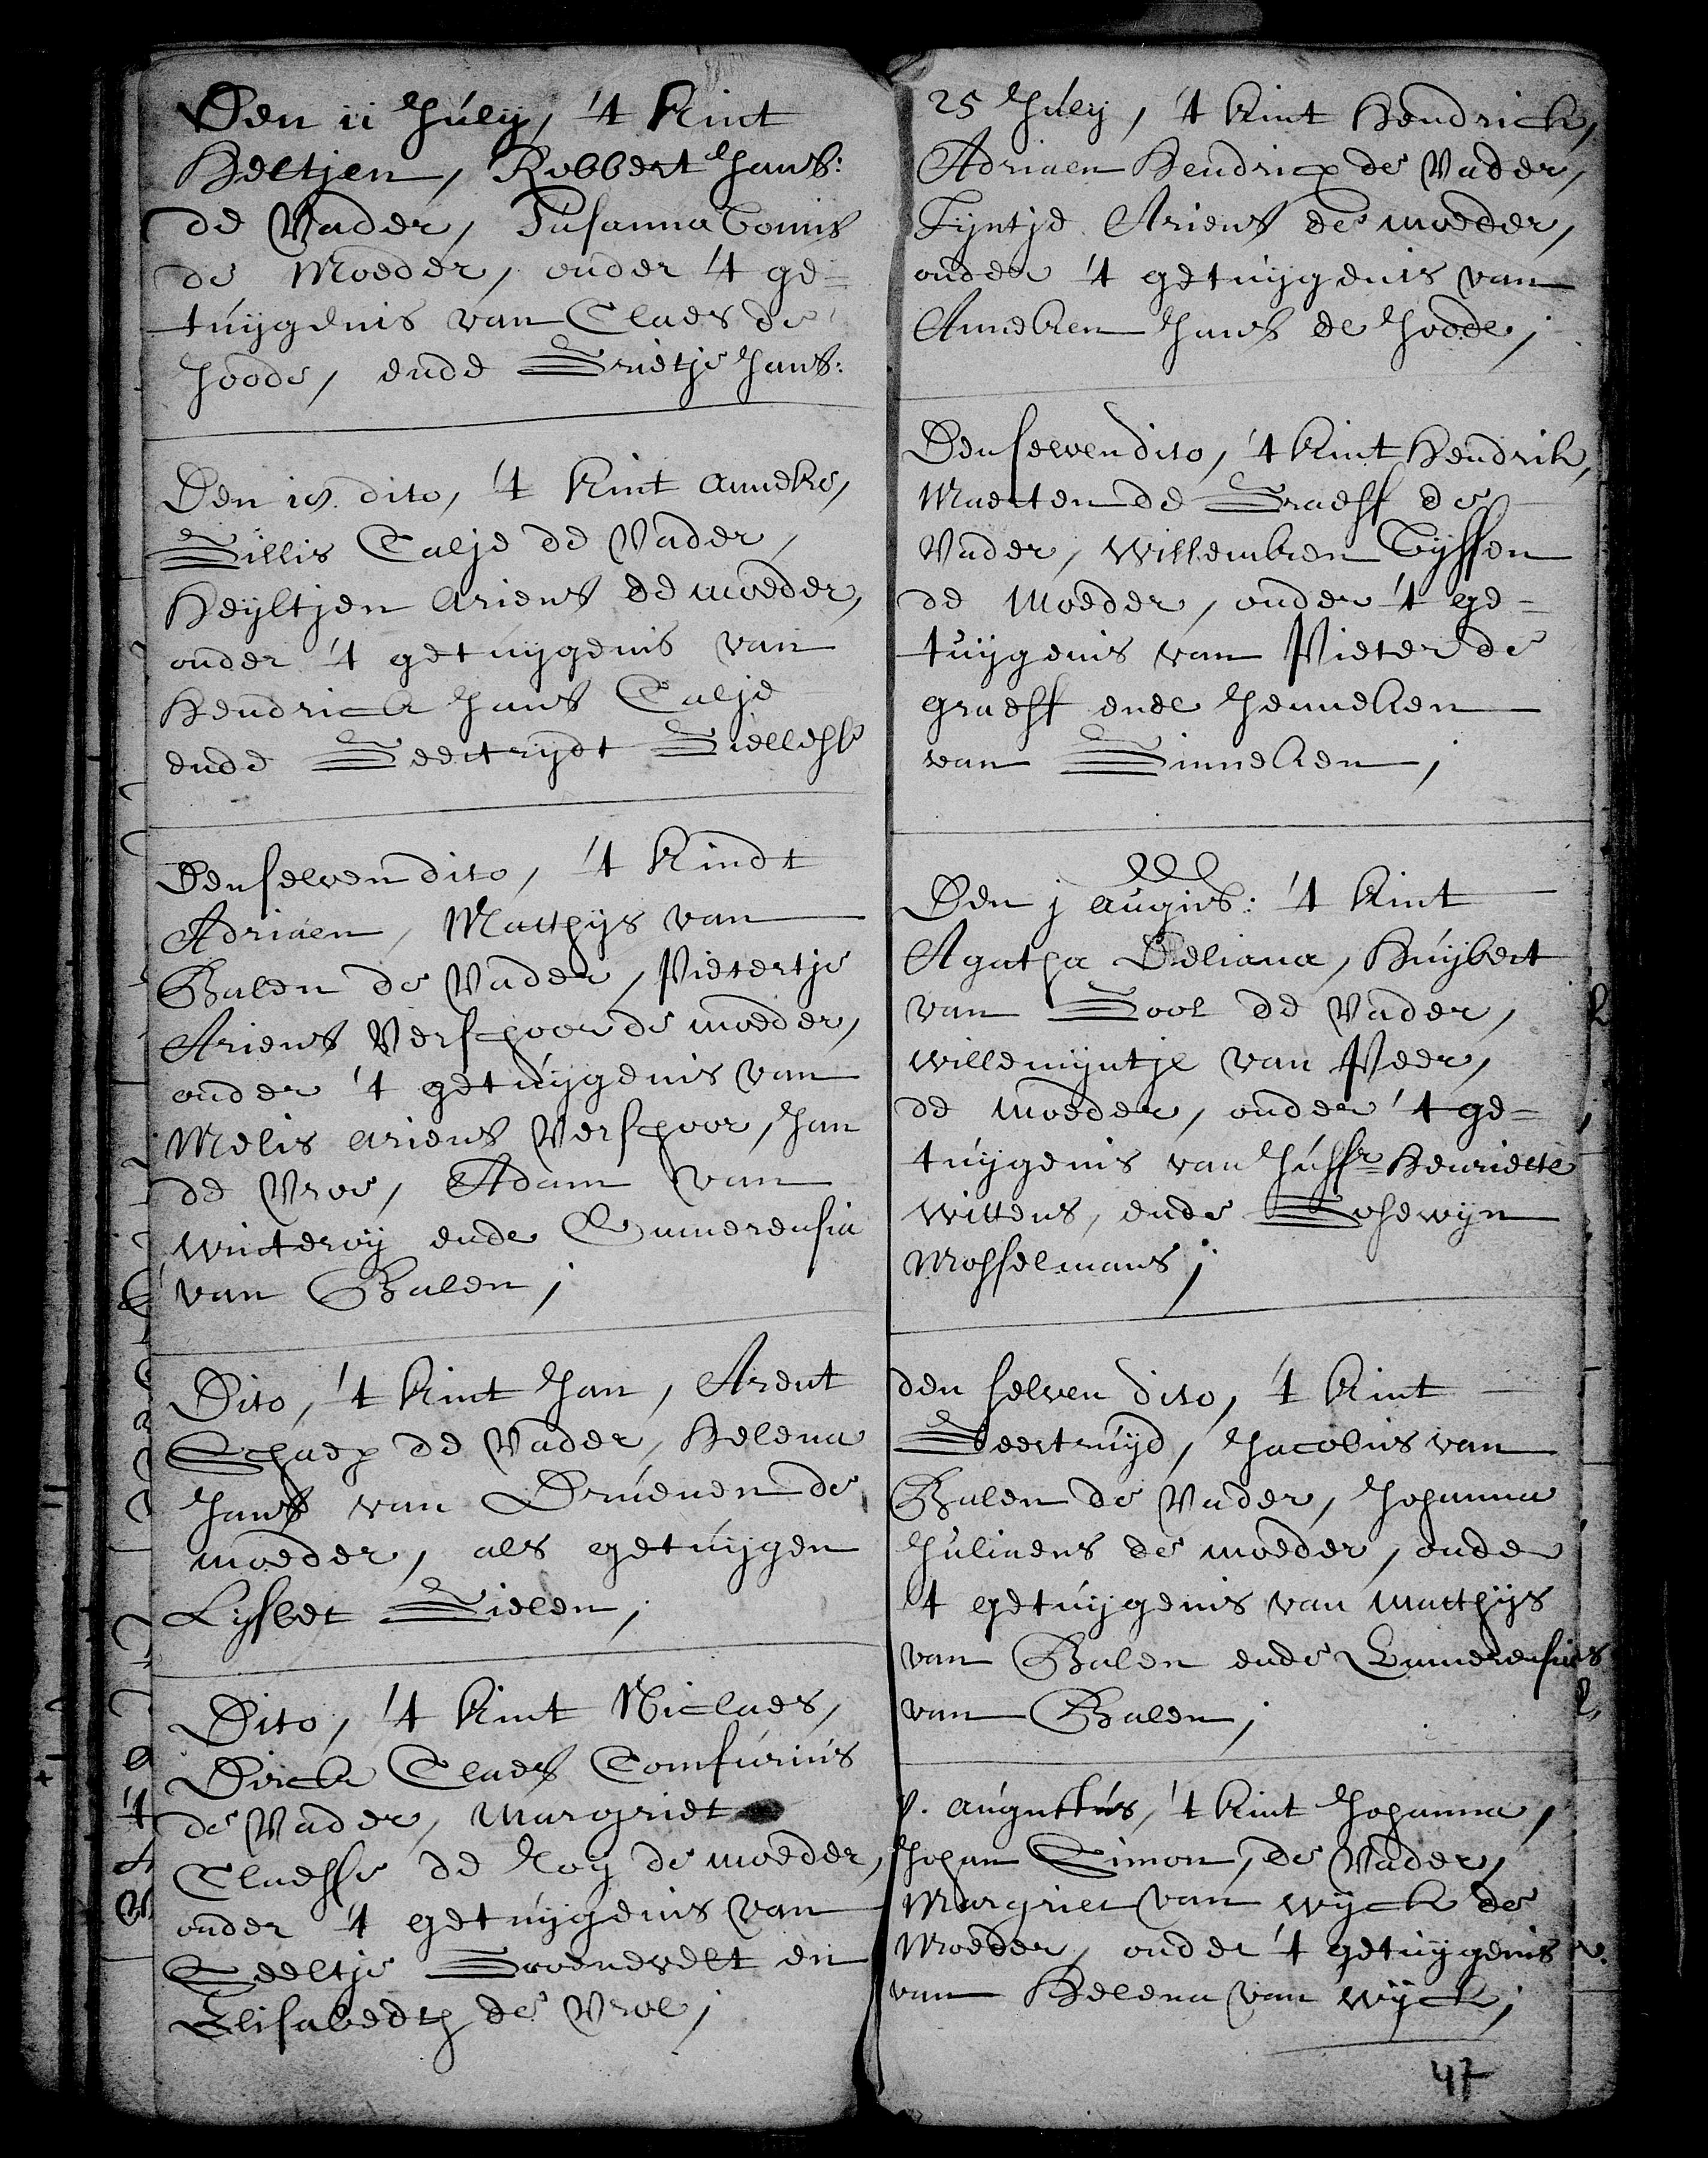 Den 11 Júlÿ, 't kint
Heltjen, Robbert Jans:
de Vader, Susanna Tonis
de Moeder, onder 't ge=
túÿgenis van Claes de
Joode, ende Grietje Jans:
Den 18. dito, 't kint anneke,
Gillis Calje de Vader,
Heyltjen Ariens de moeder,
onder 't getuÿgenis van
Hendrick Jans Calje
ende Geertrÿdt
Denselven dito, 't kindt
Adriaen, Matthÿs van
Balen de Vader, Pietertje
Ariens Verschoor de moeder,
onder 't getúÿgenis van
Melis ariens Verschoor, Jan
de Vroe, Adam van
Winteroÿ ende Emerensia
van Balen;
Dito, 't kint Jan, Arent
Schaep de Vader, Helena
Jans van Drúenen de
moeder, als getúÿgen
Lÿsbet Gielen;
Dito, 't kint Niclaes,
Dirck Claes Comfúriús
de Vader, Margriet
Claesse de Roÿ de moeder,
onder 't getúÿgenis van
Seeltje Groenevelt en
Elisabedth de Vroe;
25 Júlÿ, 't kint Hendrick,
Adriaen Hendricx de Vader,
Tÿntje Ariens de moeder,
onder 't getúÿgenis van
Anneken Jans de Joode;
Denselven dito, 't kint Hendrik,
Maerten de Graeff de
Vader, Willemken Tÿssen
de Moeder, onder 't ge=
túÿgenis van Pieter de
graeff ende Jenneken
van Ginneken;
Den j augús: 't kint
Agatha Deliana, Húÿbert
van Gool de Vader,
Willemÿntje van Peer,
de moeder, onder 't ge=
túÿgenis van Júffr Henriette
Wittens, ende Gosewÿn
Mosselmans;
den selven dito, 't kint
Geertrúÿd, Jacobús van
Balen de Vader, Johanna
Júliaens de moeder, onder
't getúÿgenis van Matthÿs
van Balen ende
van Balen;
8. aúgústús, 't kint Johanna,
Johan Simon, de Vader,
Margriet van Wÿck de
Moeder, onder 't getúÿgenis
van Helena van Wÿck;
47